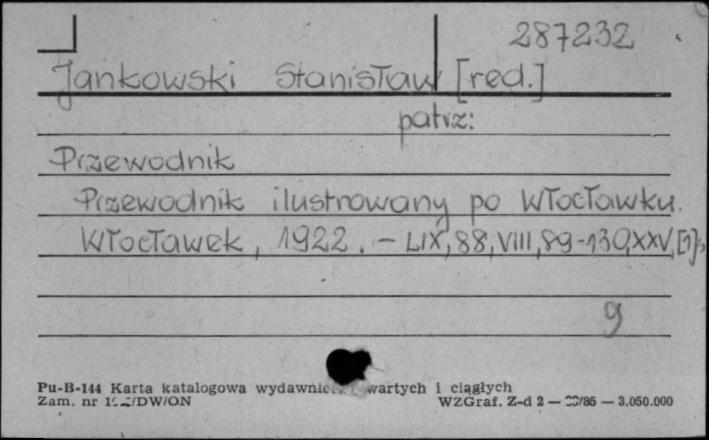 287232
Jankowski Stanisław [red.]
patrz:
Przewodnik
Przewodnik ilustrowany po Włocławku.
Włocławek, 1922. - LIX, 88, VIII, 89-130, XXV, [1] s.
9
Pu-B-144 Karta katalogowa wydawnic wartych i ciągłych
Zam. nr /DW/ON WZGraf. Z-d 2 — /85 — 3.050.000